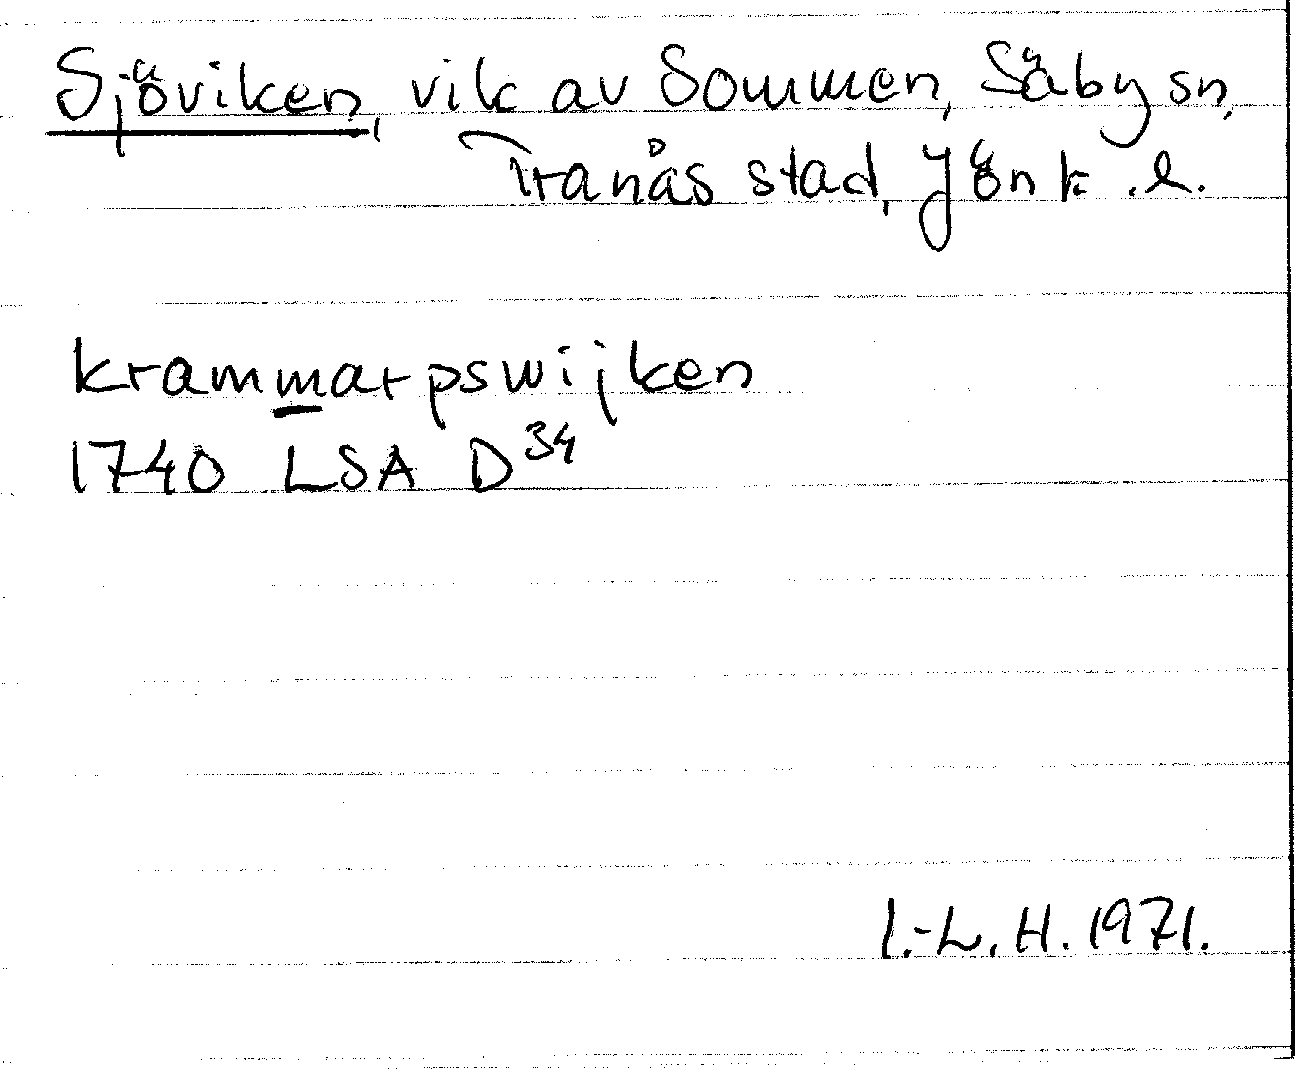 Sjöviken, vik av Sommen, Säby sn,
Tranås stad, Jönk. l.
krammarpswijken
1740 LSA D34
I.-L. H. 1971.